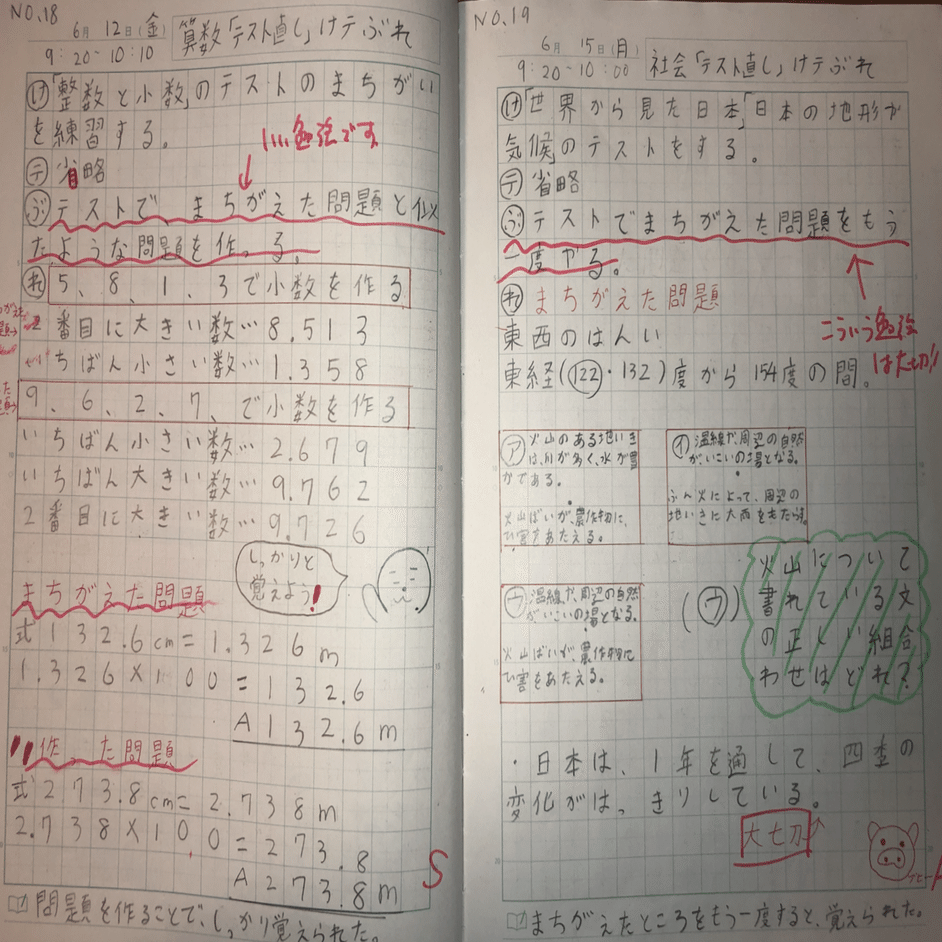 NO.18
6月 12日(金)
9:20~10:10
算数「テスト直し」けテぶれ
け「整数と小数」のテストのまちがい
を練習する。
いい勉強です
テ 省略
ぶ テストで まちがえた問題と似
たような問題を作る。
れ 5、8、1、3で小数を作る
2番目に大きい数…8.513
いちばん小さい数…1.358
9、6、2、7、で小数を作る
いちばん小さい数…2.679
いちばん大きい数…9.762
2番目に大きい数…9.726
しっかりと
覚えよう!
まちがえた問題
式 132.6cm=1.326m
1.326×100=132.6
A 132.6m
作った問題
式 273.8cm=2.738m
2.738×100=273.8
A 273.8m
S
問題を作ることで、しっかり覚えられた。
NO.19
6月 15日(月)
9:20~10:00
社会「テスト直し」けテぶれ
け「世界から見た日本」「日本の地形か
気候」のテストをする。
テ 省略
ぶ テストでまちがえた問題をもう
一度やる。
れ まちがえた問題
こういう勉強
は大切!!
東西のはんい
東経(122・132)度から154度の間。
ア 火山のある地いき
は、川が多く、水が豊
かである。
火山ばいが、農作物に、
ひ害をあたえる。
イ 温線が、周辺の自然
がいこいの場となる。
ふん火によって、周辺の
地いきに大雨をもたらす。
ウ 温線が、周辺の自然
がいこいの場となる。
火山ばいが、農作物に
ひ害をあたえる。
(ウ)
火山について
書れている文
の正しい組合
わせはどれ?
・日本は、1年を通して、四季の
変化がはっきりしている。
大七刀
まちがえたところをもう一度すると、覚えられた。